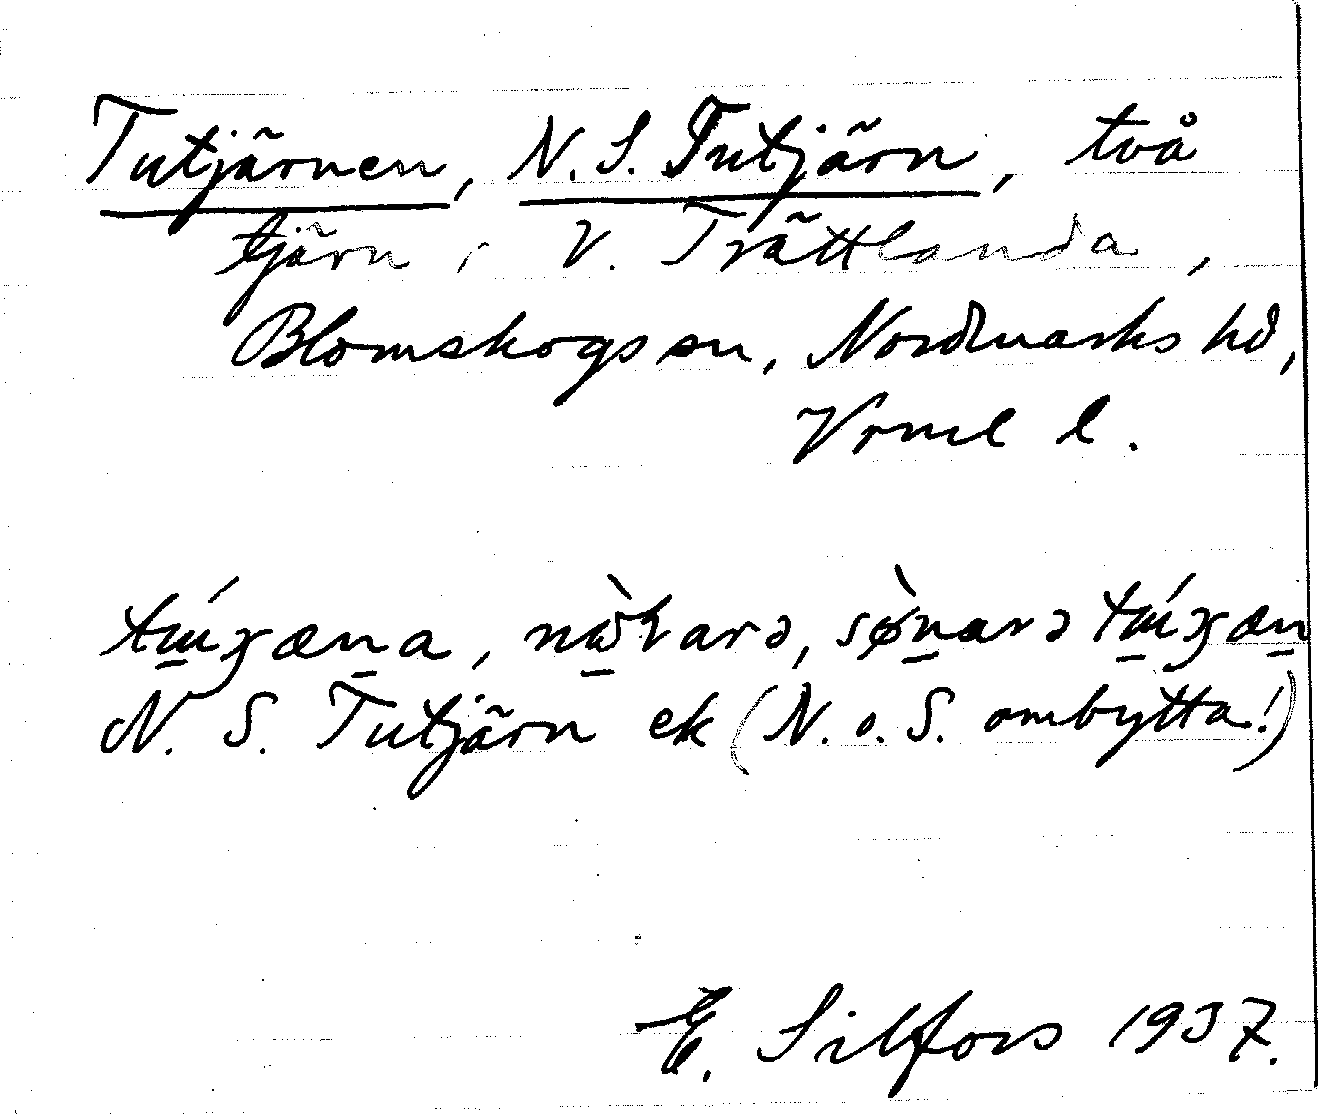 Tutjärnen, N. S. Tutjärn, två
tjärn i V. Trättlanda,
Blomskogs sn, Nordmarks hd,
Vrml l.
N. S. Tutjärn ek (N. o. S. ombytta!)
E. Silfors 1937.